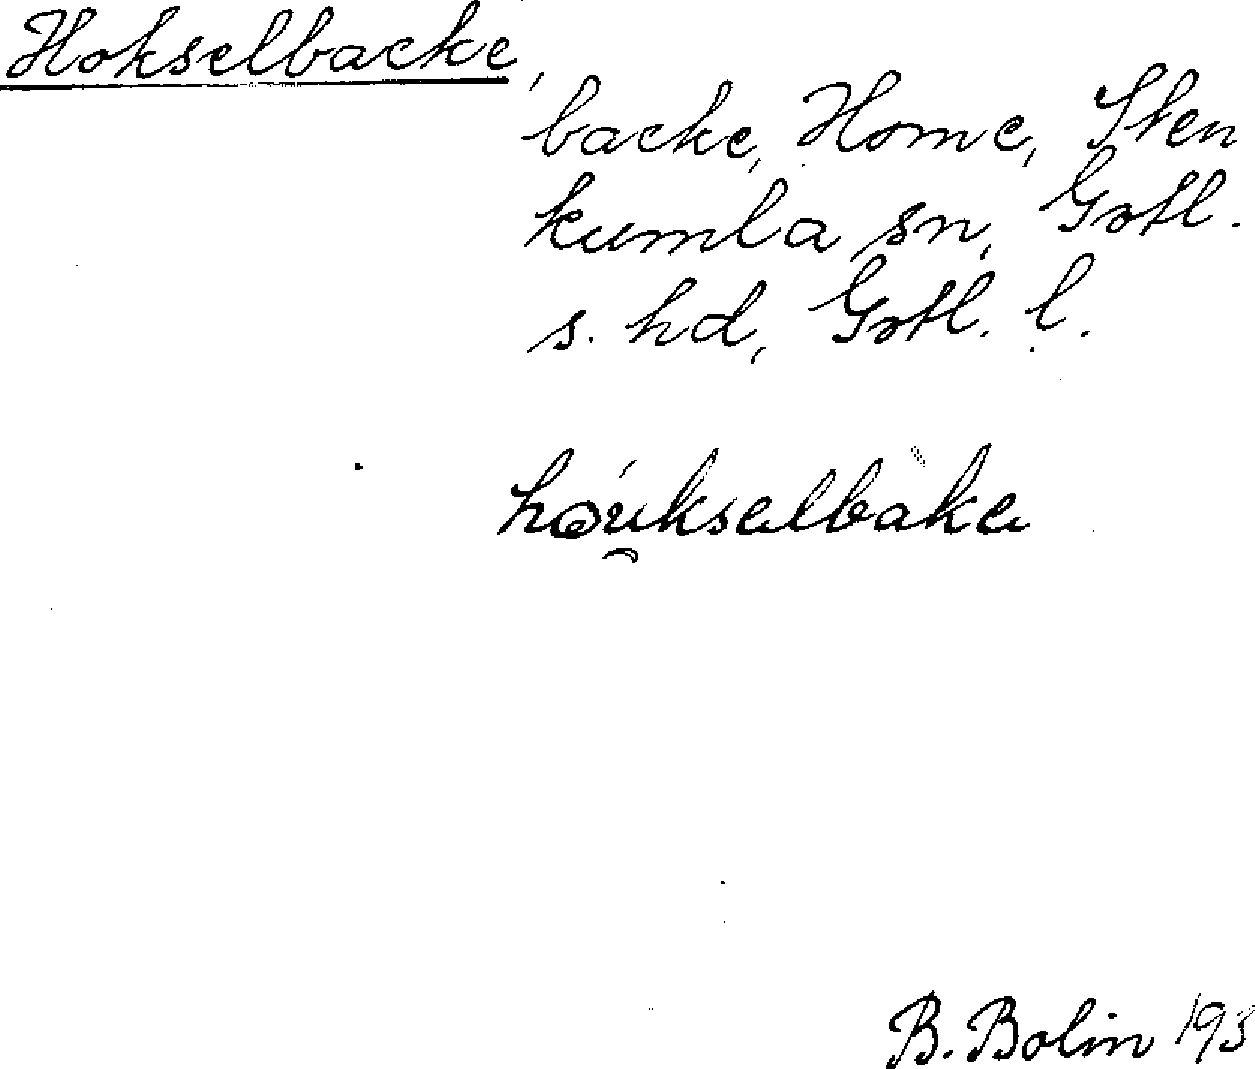 Hokselbacke,
backe, Home, Sten
kumla sn, Gotl.
s. hd, Gotl. l.
høukselbake
B. Bolin 193